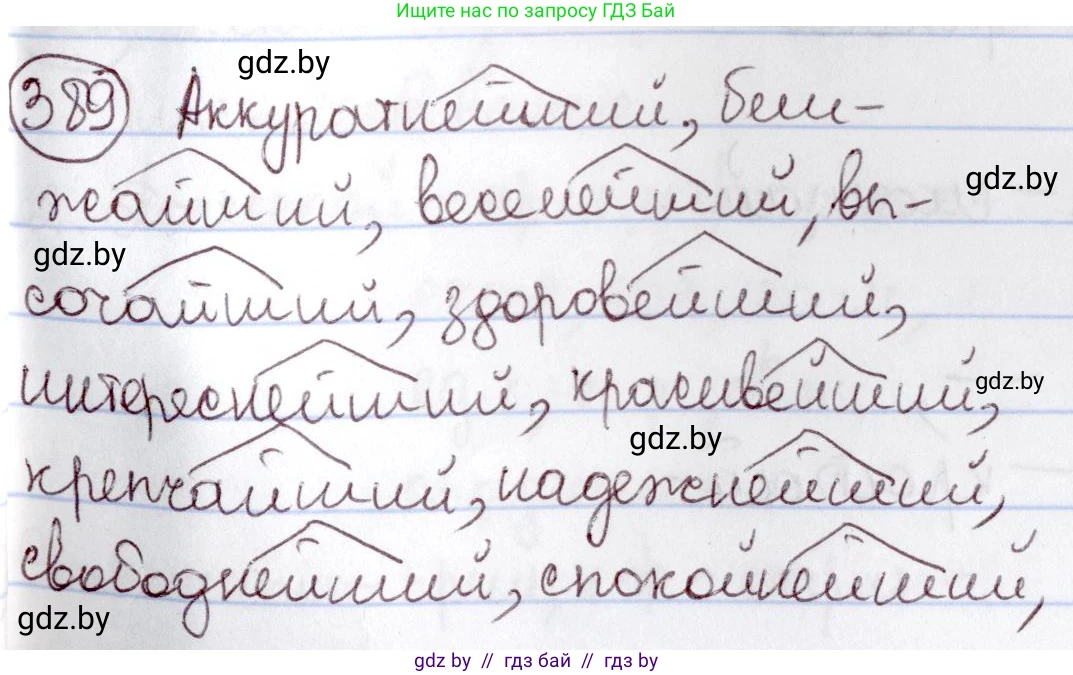 Ищите нас по запросу ГДЗ Бай
gdz.by
389 Аккуратнейший, бли-
жайший, веселейший, вы-
gdz.by
gdz.by
сочайший, здоровейший,
интереснейший, красивейший,
gdz.by
gdz.by
крепчайший, надежнейший,
свободнейший, спокойнейший,
gdz.by
gdz by // гдз бай // гдз by